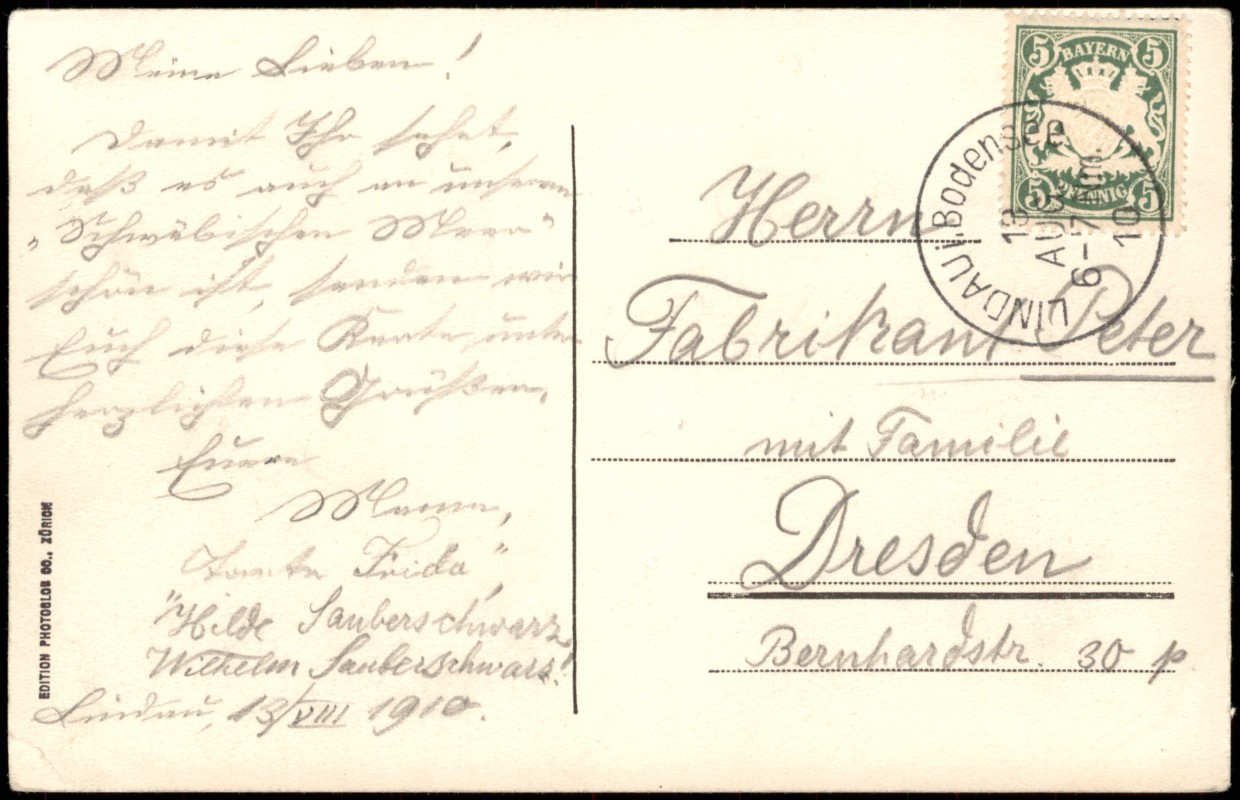 Meine Lieben!
Damit Ihr sehet,
daß es auch an unserem
„Schwäbischen Meer“
schön ist, senden wir
Euch diese Karte unter
herzlichsten Grüßen,
Euere
Mama,
Tante Frida",
"Hilde Sauberschwarz,
Wilhelm Sauberschwarz!
Lindau, 13/VIII 1910.
EDITION PHOTOGLOB CO., ZÜRICH
5 BAYERN 5
5 PFENNIG 5
LINDAU i. Bodensee
13
AUG
6-7 Nm.
10
Herrn
Fabrikant Peter
mit Familie
Dresden
Bernhardstr. 30 p